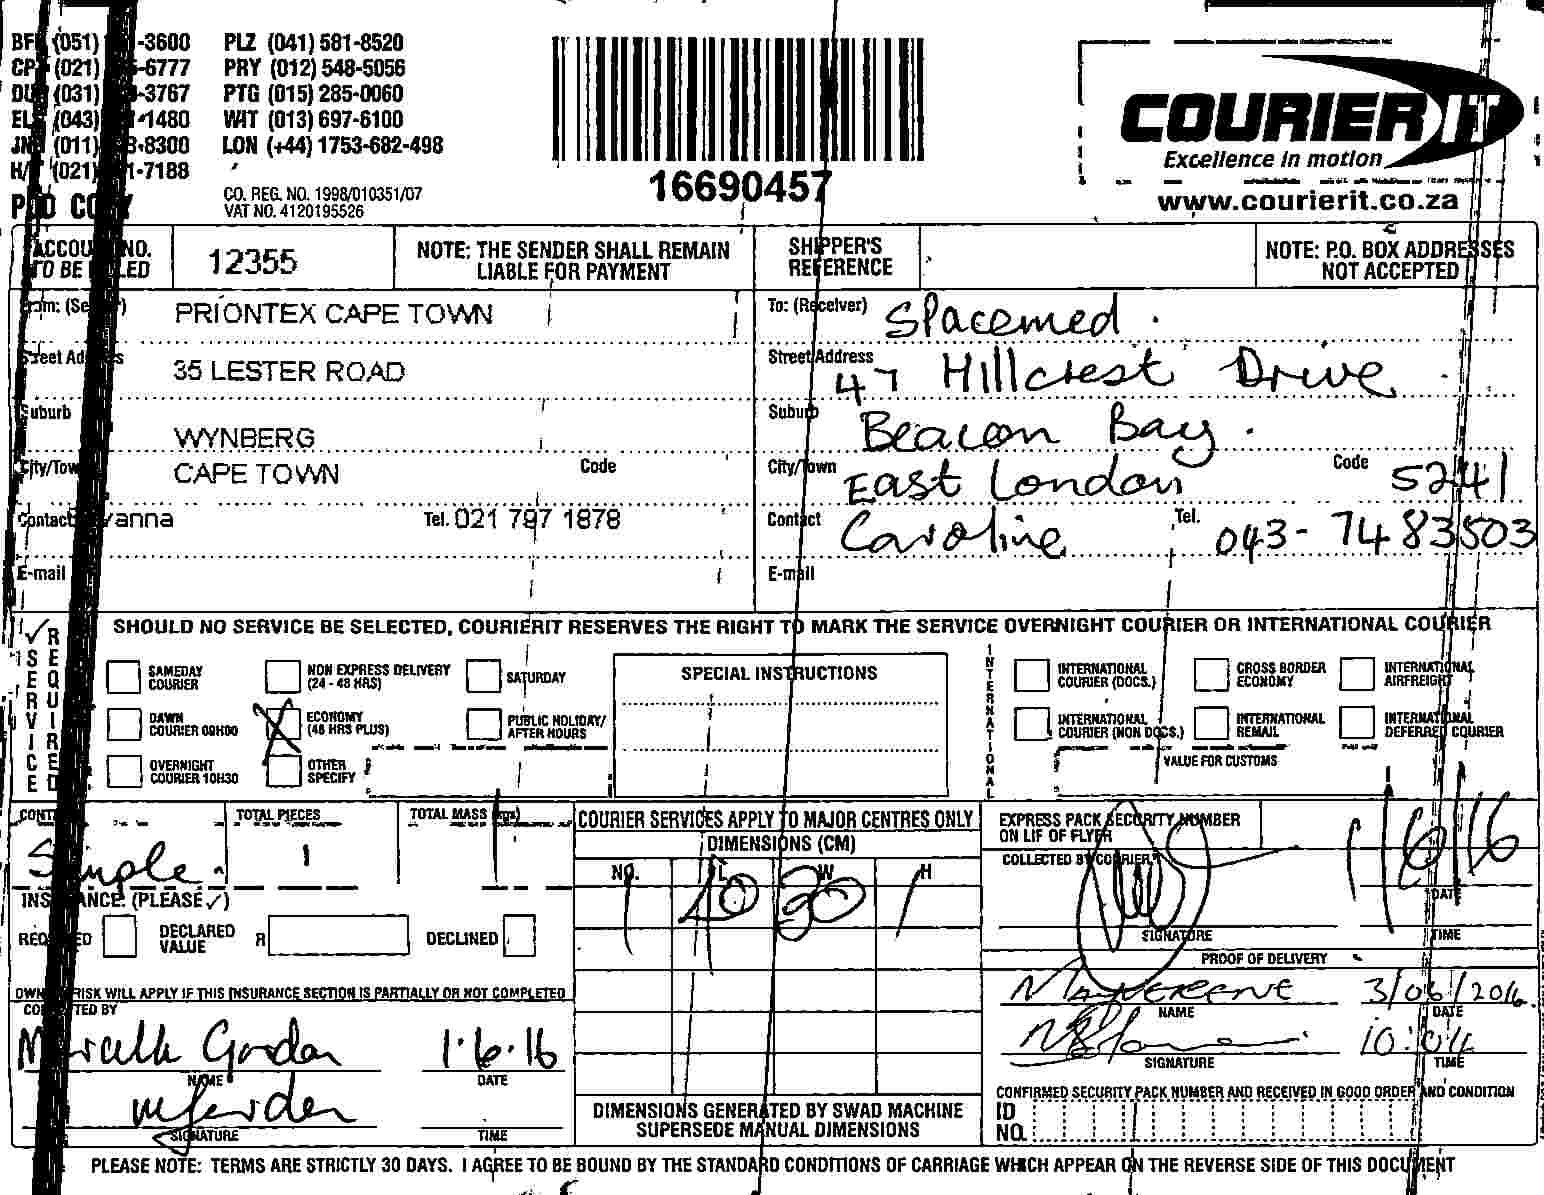 (051) -3600 PLZ (041) 581-8520
(021) -6777 PRY (012) 548-5056
(031) -3767 PTG (015) 285-0060
(043) -1480 WIT (013) 697-6100
(011) -8300 LON (+44) 1753-682-498
(021) 1-7188
CO. REG. NO. 1998/010351/07
VAT NO. 4120195526
16690457
COURIER IT
Excellence in motion
www.courierit.co.za
ACCOUNT NO. TO BE BILLED
12355
NOTE: THE SENDER SHALL REMAIN LIABLE FOR PAYMENT
SHIPPER'S REFERENCE
NOTE: P.O. BOX ADDRESSES NOT ACCEPTED
PRIONTEX CAPE TOWN
Street Address 35 LESTER ROAD
Suburb WYNBERG
City/Town CAPE TOWN Code
Contact anna Tel. 021 797 1878
E-mail
To: (Receiver) Spacemed.
Street Address 47 Hillcrest Drive
Suburb Beacon Bay.
City/Town East London Code 5241
Contact Caroline Tel. 043-7483503
E-mail
SERVICE REQUIRED
SHOULD NO SERVICE BE SELECTED, COURIERIT RESERVES THE RIGHT TO MARK THE SERVICE OVERNIGHT COURIER OR INTERNATIONAL COURIER
SAMEDAY COURIER
NON EXPRESS DELIVERY (24 - 48 HRS)
SATURDAY
DAWN COURIER 09H00
ECONOMY (48 HRS PLUS)
PUBLIC HOLIDAY/ AFTER HOURS
OVERNIGHT COURIER 10H30
OTHER SPECIFY
SPECIAL INSTRUCTIONS
INTERNATIONAL
INTERNATIONAL COURIER (DOCS.)
CROSS BORDER ECONOMY
INTERNATIONAL AIRFREIGHT
INTERNATIONAL COURIER (NON DOCS.)
INTERNATIONAL REMAIL
INTERNATIONAL DEFERRED COURIER
VALUE FOR CUSTOMS
TOTAL PIECES
1
TOTAL MASS (kgs)
1
Sample.
INSURANCE: (PLEASE ✓)
REQUIRED
DECLARED VALUE R
DECLINED
OWNERS RISK WILL APPLY IF THIS INSURANCE SECTION IS PARTIALLY OR NOT COMPLETED
Gordon 1.6.16
NAME DATE
SIGNATURE TIME
COURIER SERVICES APPLY TO MAJOR CENTRES ONLY
DIMENSIONS (CM)
NO. L W H
1 40 30 1
DIMENSIONS GENERATED BY SWAD MACHINE SUPERSEDE MANUAL DIMENSIONS
EXPRESS PACK SECURITY NUMBER ON LIF OF FLYER
COLLECTED BY COURIER
1/6/16
DATE
SIGNATURE TIME
PROOF OF DELIVERY
3/06/2016
NAME DATE
10:04
SIGNATURE TIME
CONFIRMED SECURITY PACK NUMBER AND RECEIVED IN GOOD ORDER AND CONDITION
ID NO.
PLEASE NOTE: TERMS ARE STRICTLY 30 DAYS. I AGREE TO BE BOUND BY THE STANDARD CONDITIONS OF CARRIAGE WHICH APPEAR ON THE REVERSE SIDE OF THIS DOCUMENT